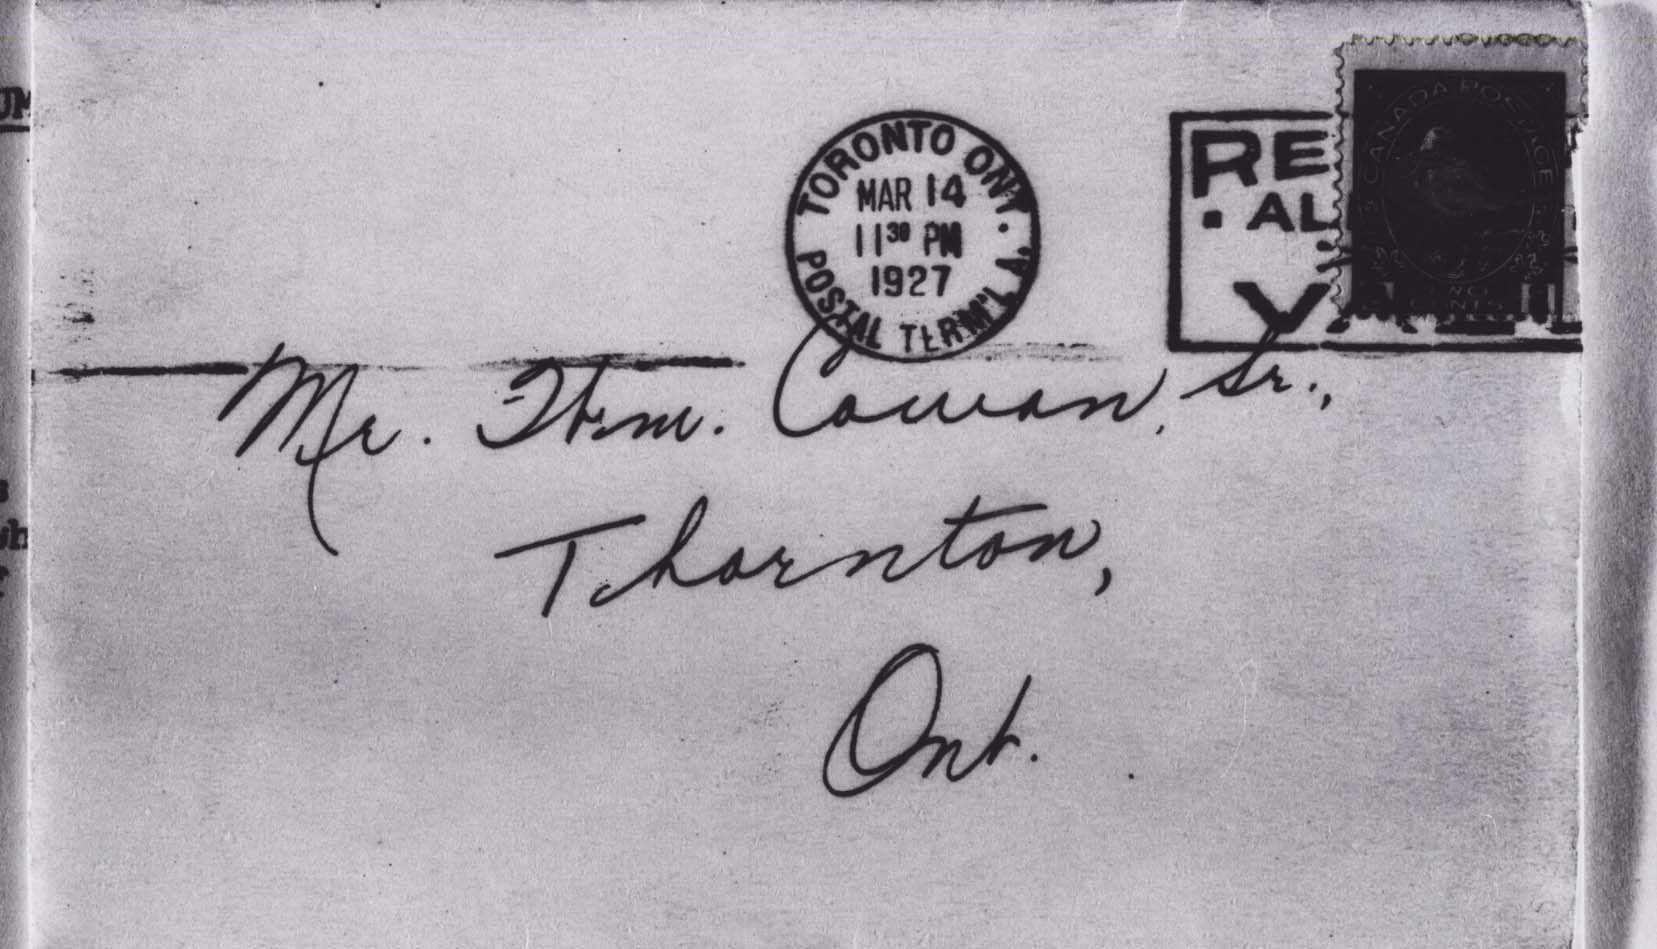 TORONTO ONT.
MAR 14
11 30 PM
1927
POSTAL TERM'L A.
RE
. AL
V
CANADA POSTAGE
Mr. Thom. Cowan, Sr.,
Thornton,
Ont.